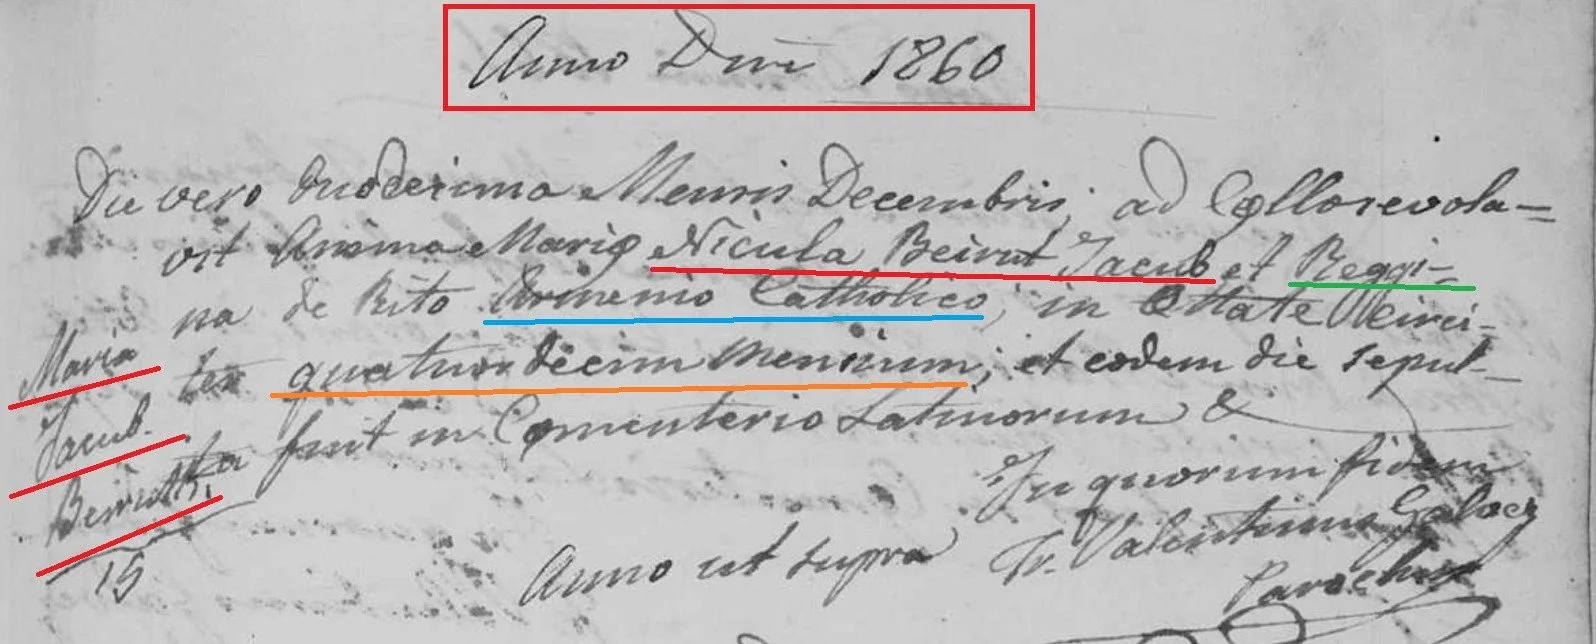 Anno Dni 1860
Die vero duodecima Mensis Decembris, ad Cęllos evola=
vit Anima Marię Nicula Beirut Jacub et Reggi-
na de Rito Armenio Catholico, in Ettate circi-
ter quatuordecim Mensium; et eodem die sepul-
ta fuit in Cęmenterio Latinorum &
Maria
Jacub.
Beirut
15
In quorum fidem
Anno ut supra Fr. Valentinus
Parochus